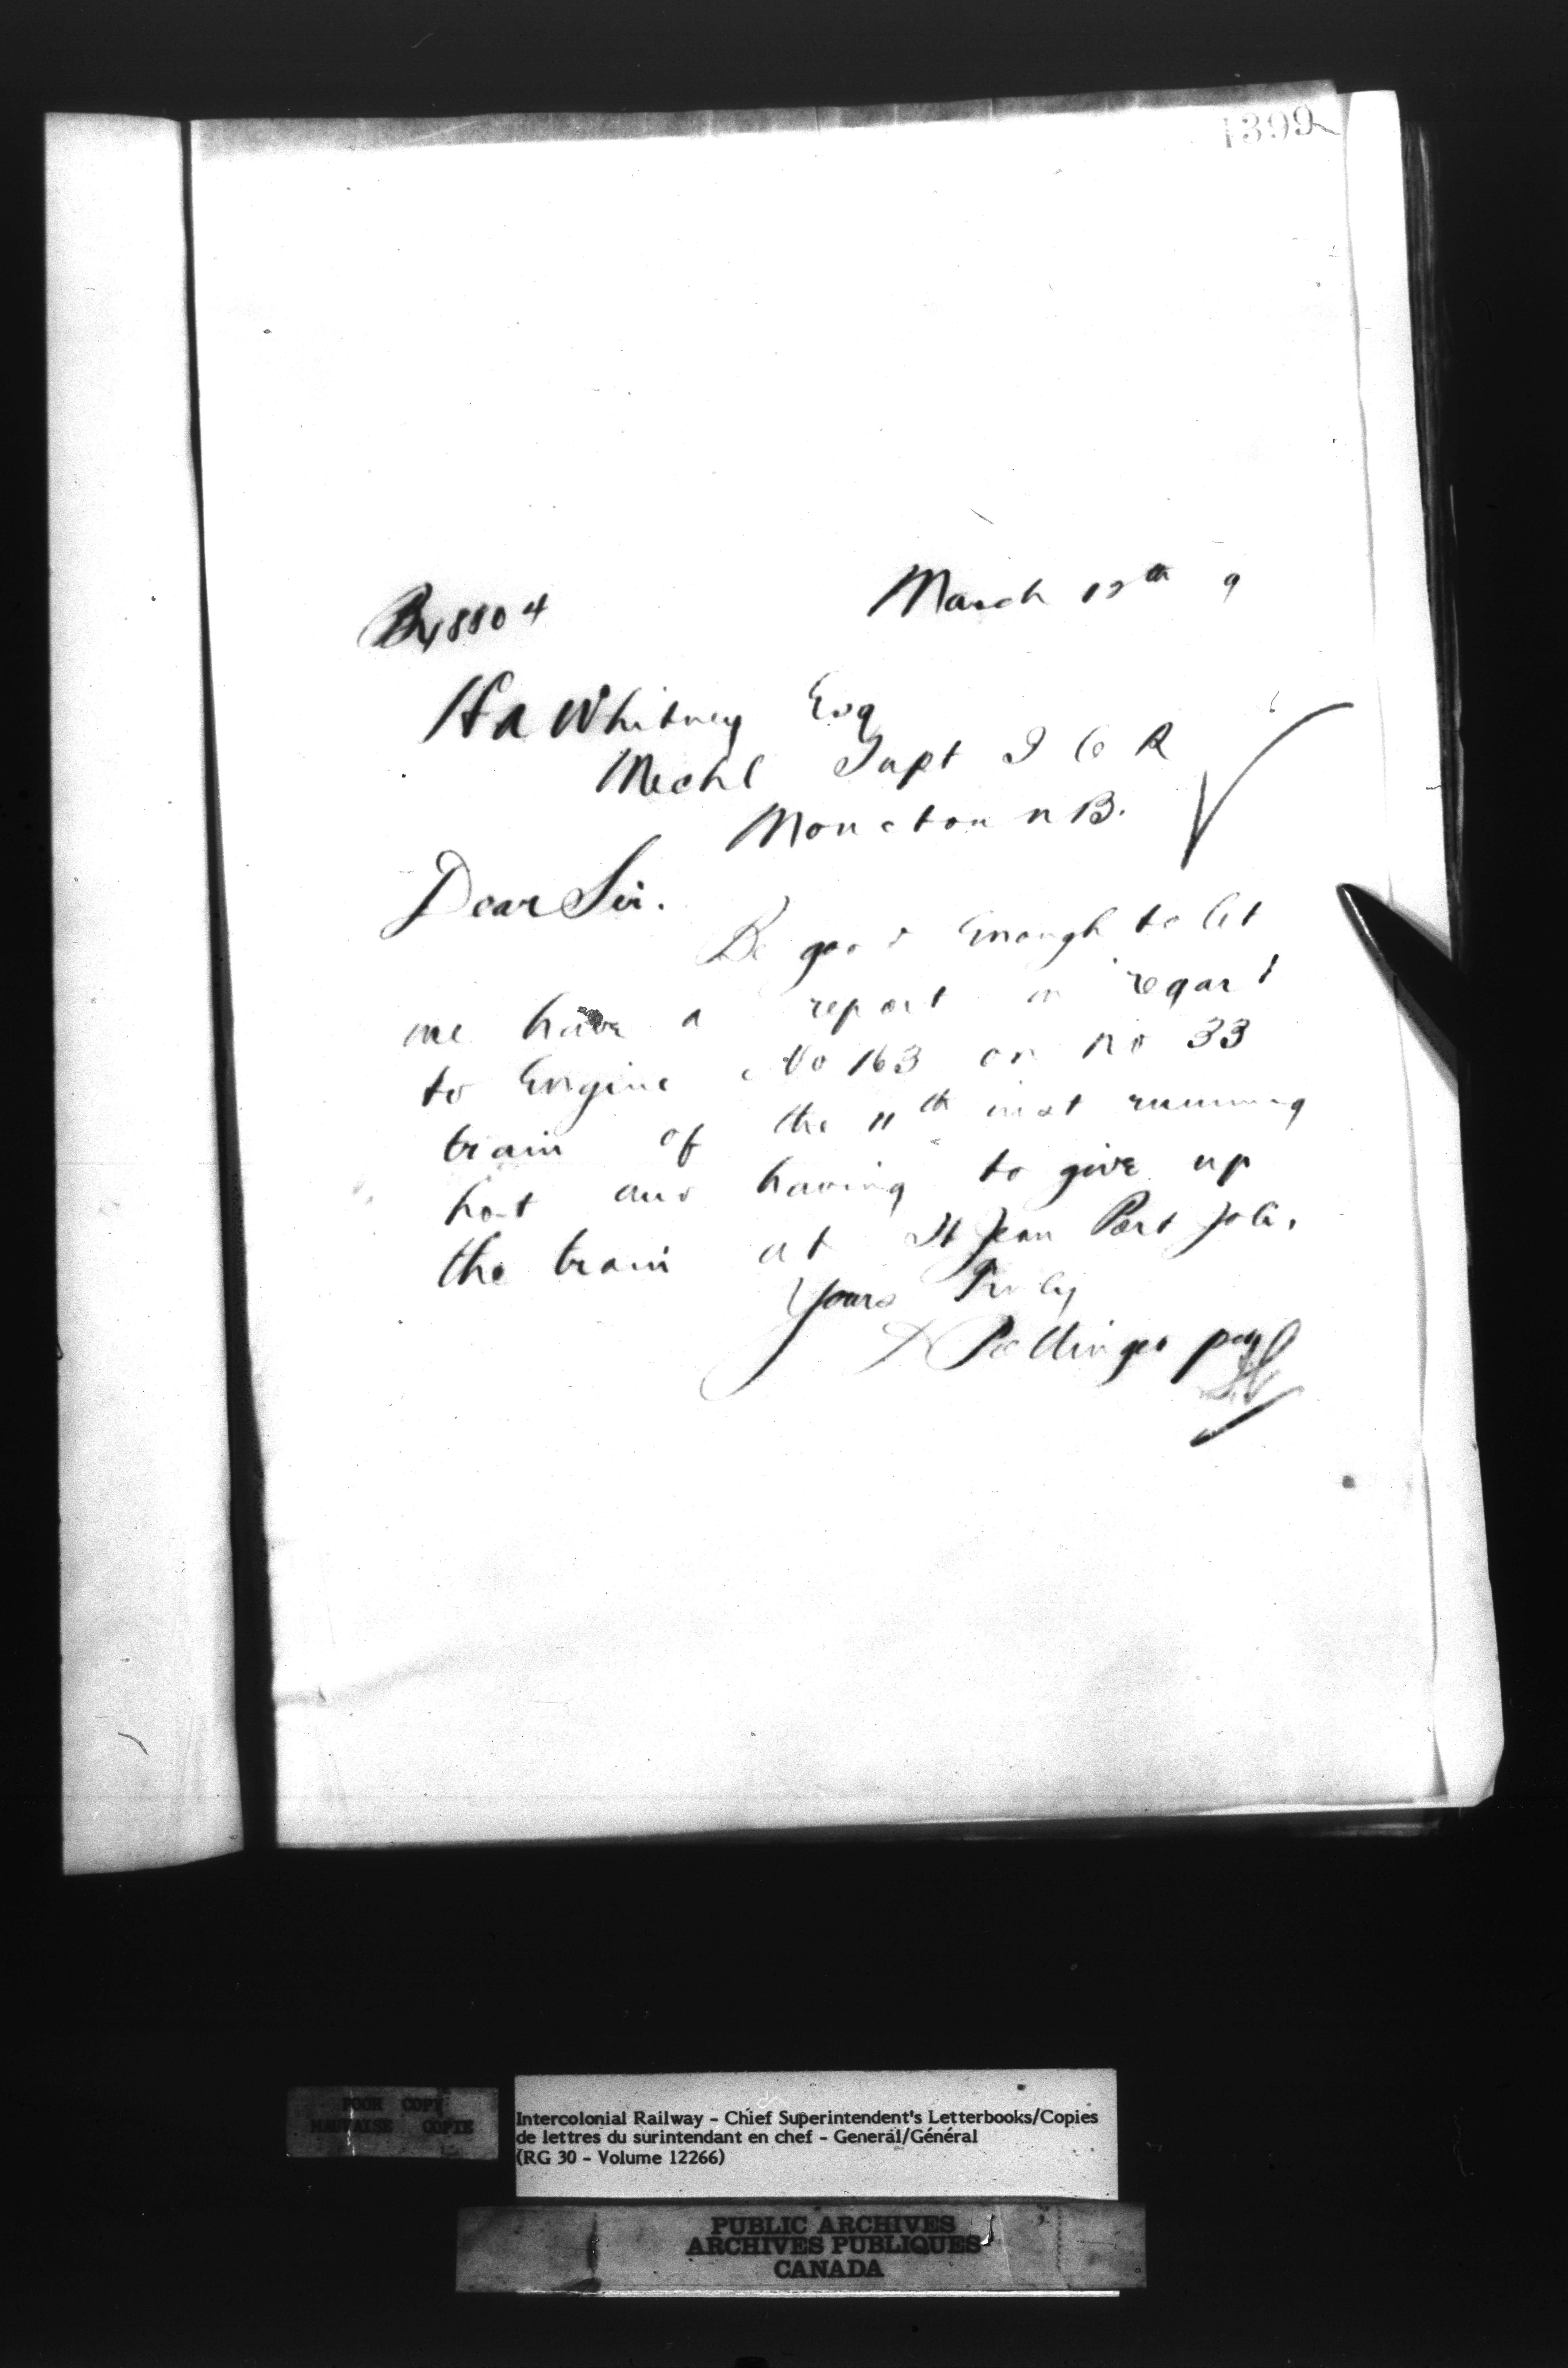 1399
48804
March 12th 9
H A Whitney Esq
Mechl Supt I C R
Moncton N B.
Dear Sir.
Be good Enough to let
me have a report in regard
to Engine No 163 on No 33
train of the 11th inst running
hot and having to give up
the train at St Jean Port Joli.
Yours Truly
D Pottinger per
POOR COPY
MAUVAISE COPIE
Intercolonial Railway - Chief Superintendent's Letterbooks/Copies
de lettres du surintendant en chef - General/Général
(RG 30 - Volume 12266)
PUBLIC ARCHIVES
ARCHIVES PUBLIQUES
CANADA